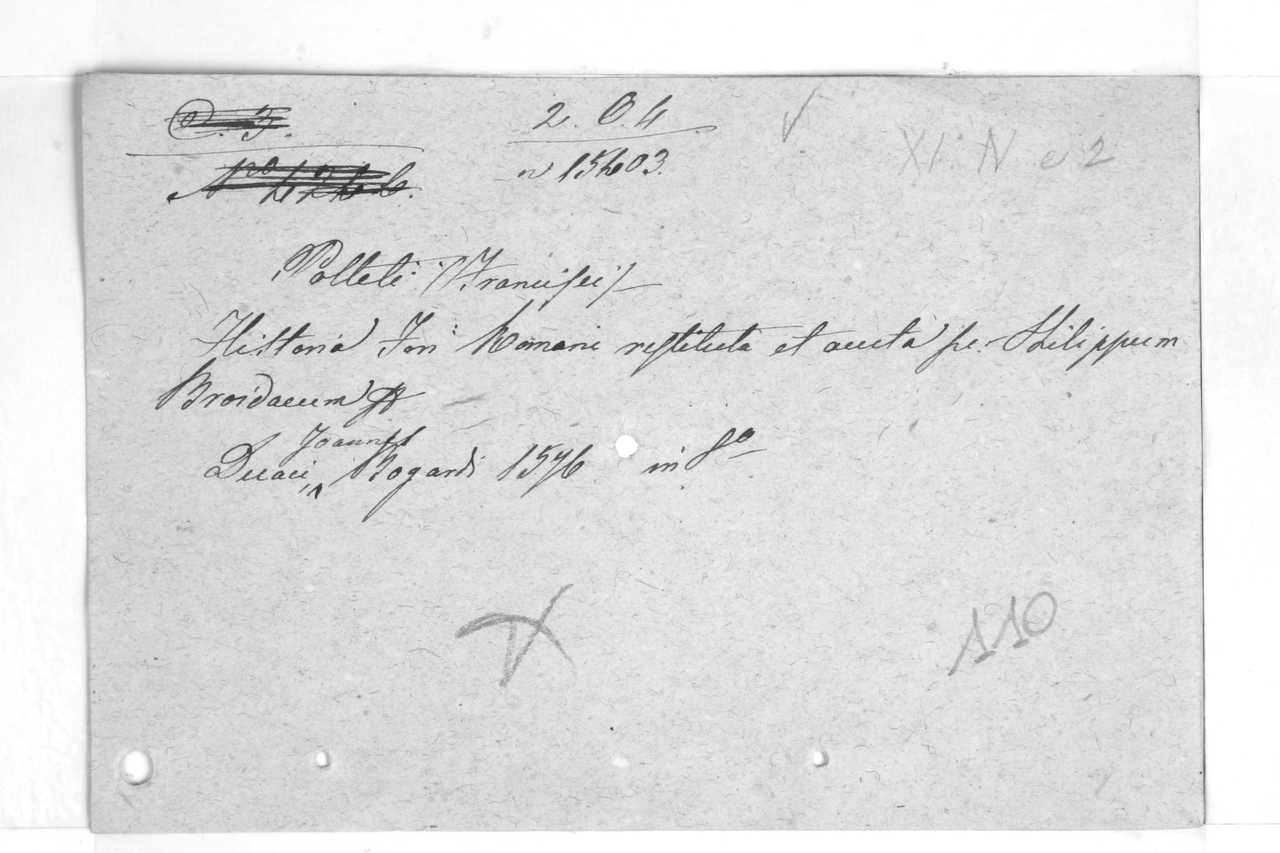 2. O. 4
XI. N e 2
n 15403.
Polleti (Francisci)
Historia Fori Romani restituta et aucta pe. Philippum
Broidaeum
Joannis
Duaci, Bogardi 1576 in 8º
110